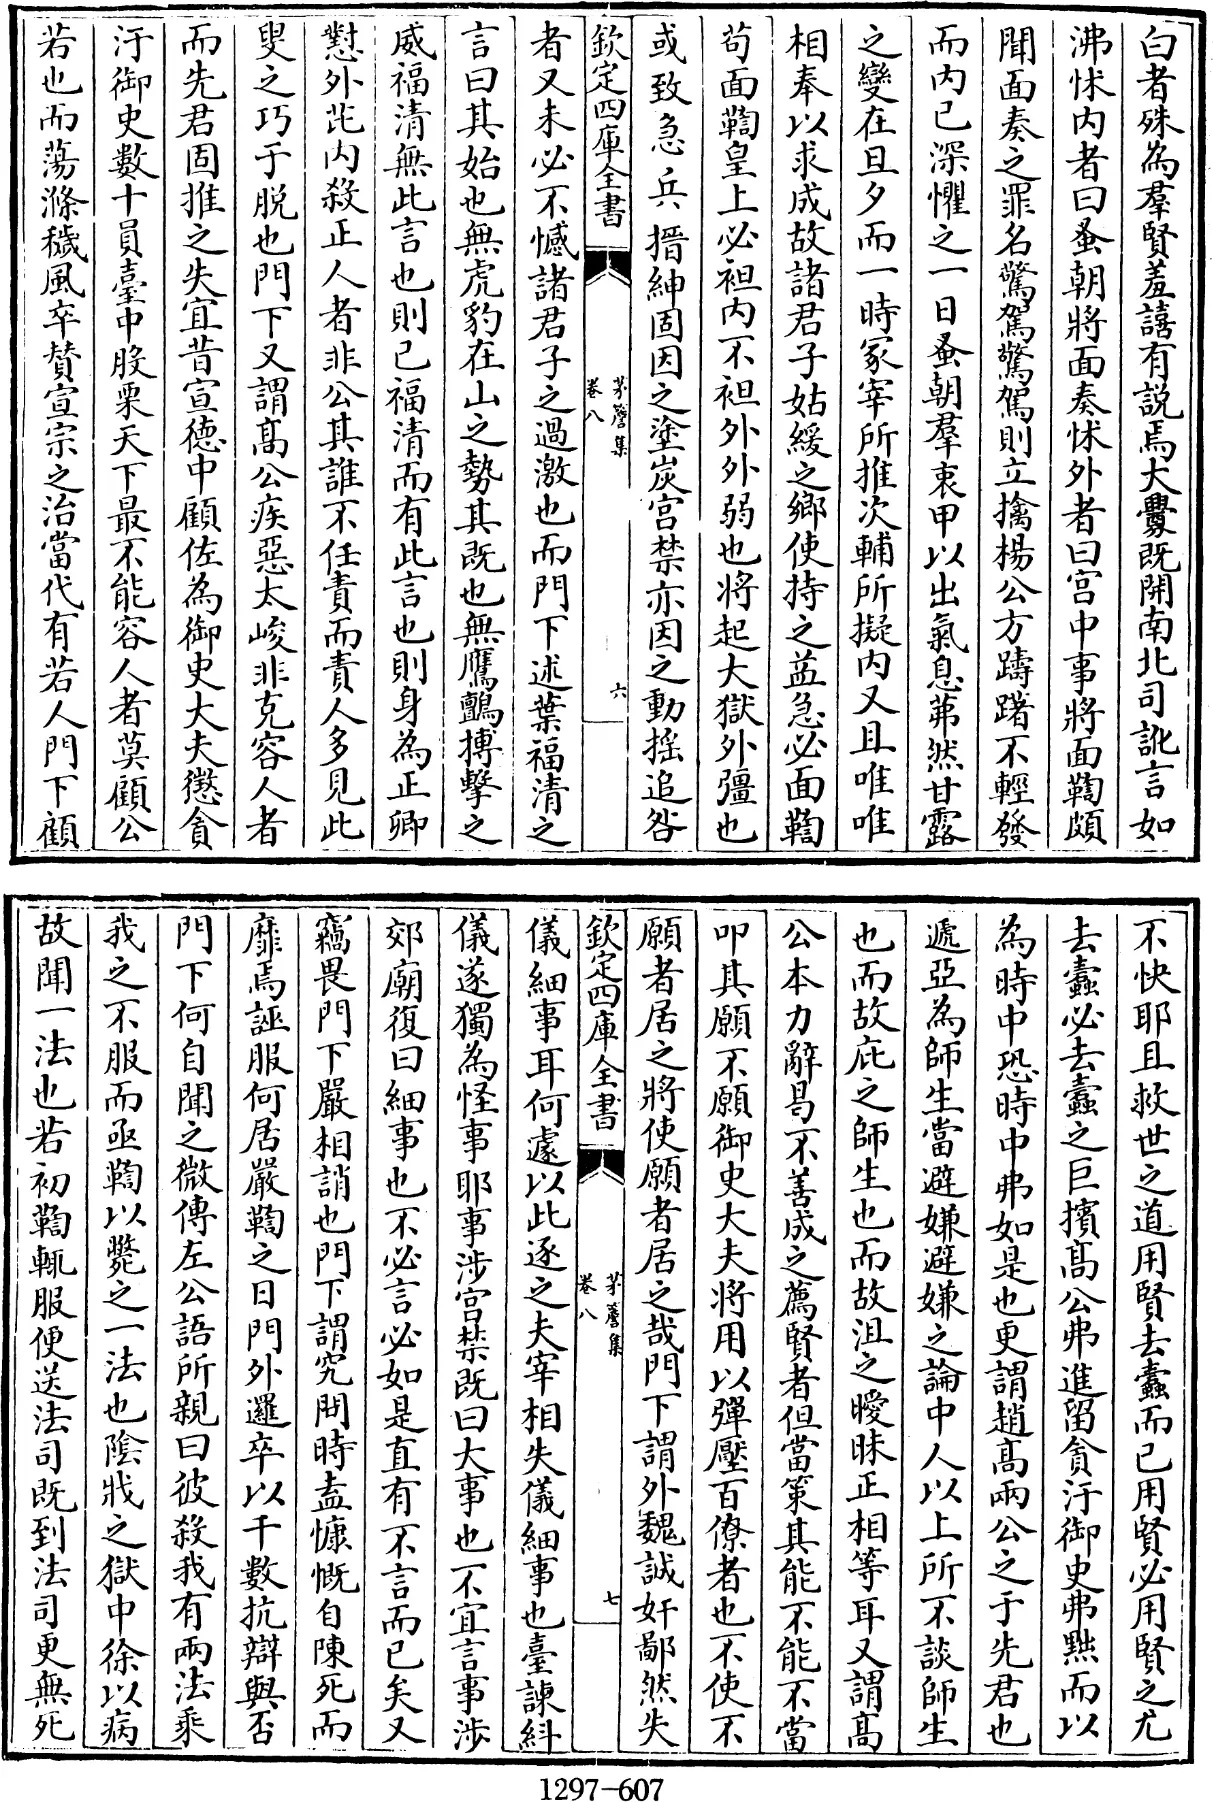 白者殊為羣賢羞譆有説焉大釁既開南北司訛言如
沸怵内者曰蚤朝將面奏怵外者曰宫中事將面鞫頗
聞面奏之罪名驚駕驚駕則立擒楊公方躊躇不輕發
而内已深懼之一日蚤朝羣衷甲以出氣息茀然甘露
之變在旦夕而一時冢宰所推次輔所擬内又且唯唯
相奉以求成故諸君子姑緩之鄉使持之益急必面鞫
苟面鞫皇上必袒内不袒外外弱也將起大獄外彊也
或致急兵搢紳固因之塗炭宫禁亦因之動揺追咎
欽定四庫全書
茅簷集
卷八
六
者又未必不憾諸君子之過激也而門下述葉福清之
言曰其始也無虎豹在山之勢其既也無鷹鸇搏擊之
威福清無此言也則已福清而有此言也則身為正卿
懟外芘内殺正人者非公其誰不任責而責人多見此
叟之巧于脱也門下又謂髙公疾惡太峻非克容人者
而先君固推之失宜昔宣德中顧佐為御史大夫懲貪
汙御史數十員臺中股栗天下最不能容人者莫顧公
若也而蕩滌穢風卒賛宣宗之治當代有若人門下顧
不快耶且救世之道用賢去蠧而已用賢必用賢之尤
去蠧必去蠧之巨擯髙公弗進留貪汙御史弗黜而以
為時中恐時中弗如是也更謂趙髙兩公之于先君也
遞亞為師生當避嫌避嫌之論中人以上所不談師生
也而故庇之師生也而故沮之曖昧正相等耳又謂髙
公本力辭曷不善成之薦賢者但當策其能不能不當
叩其願不願御史大夫將用以彈壓百僚者也不使不
願者居之將使願者居之哉門下謂外魏誠奸鄙然失
欽定四庫全書
茅簷集
卷八
七
儀細事耳何遽以此逐之夫宰相失儀細事也臺諫糾
儀遂獨為怪事耶事涉宫禁既曰大事也不宜言事涉
郊廟復曰細事也不必言必如是直有不言而已矣又
竊畏門下嚴相誚也門下謂究問時盍慷慨自陳死而
靡焉誣服何居嚴鞫之日門外邏卒以千數抗辯與否
門下何自聞之微傳左公語所親曰彼殺我有兩法乘
我之不服而亟鞫以斃之一法也隂戕之獄中徐以病
故聞一法也若初鞫輒服便送法司既到法司更無死
1297-607